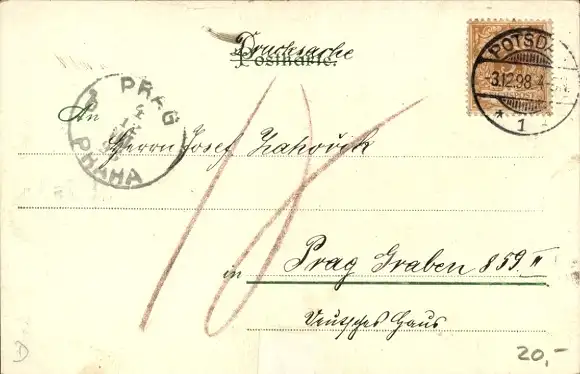 Drucksache
Postkarte.
POTSDA
3.12.98.4-5N.
* 1
PRAG
PRAHA
An Herrn Josef Zahořík
18
in Prag Graben 859 II
Deutsches Haus
D
20,-